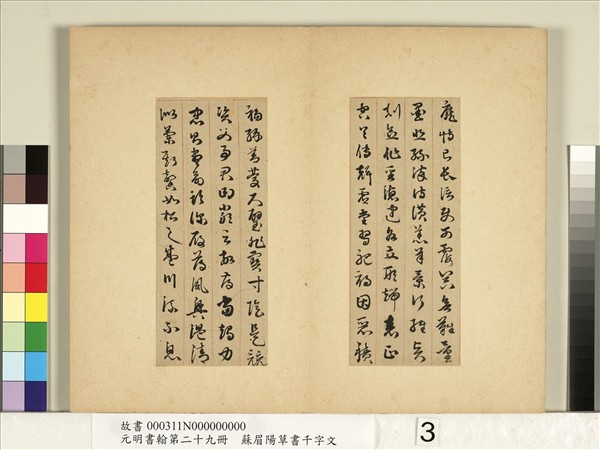 靡恃己長信使可覆器欲難量
墨悲絲染詩讚羔羊景行維賢
剋念作聖德建名立形端表正
空谷傳聲虛堂習聽禍因惡積
福緣善慶尺璧非寶寸陰是競
資父事君曰嚴與敬孝當竭力
忠則盡命臨深履薄夙興溫清
似蘭斯馨如松之盛川流不息
故書 000311N000000000
元明書翰第二十九冊 蘇眉陽草書千字文
3